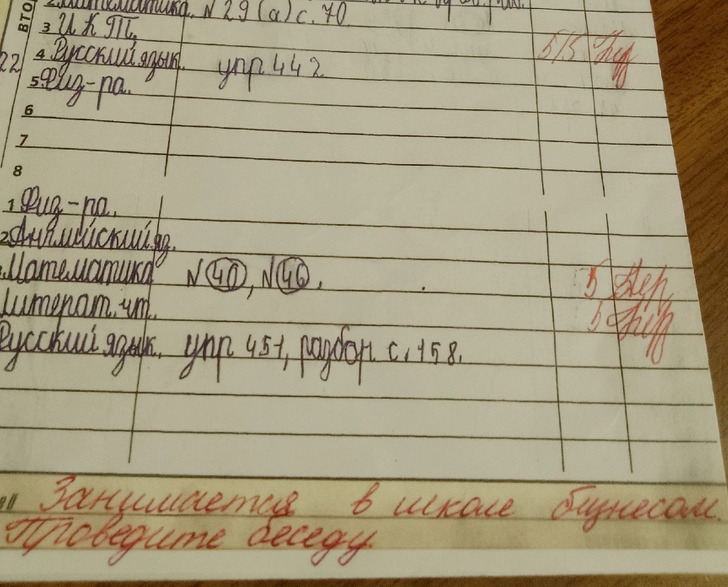 2 Математика. N 29 (а) с. 70
ВТО
3 И К Т.
22
4 Русский язык. упр 442 5/5
5 Физ-ра.
6
7
8
1 Физ-ра.
2 Английский яз.
Математика N 40, N 46. 5
Литерат. чт. 5
Русский язык. упр 451, разбор с. 158.
Занимается в школе бизнесом.
Проведите беседу